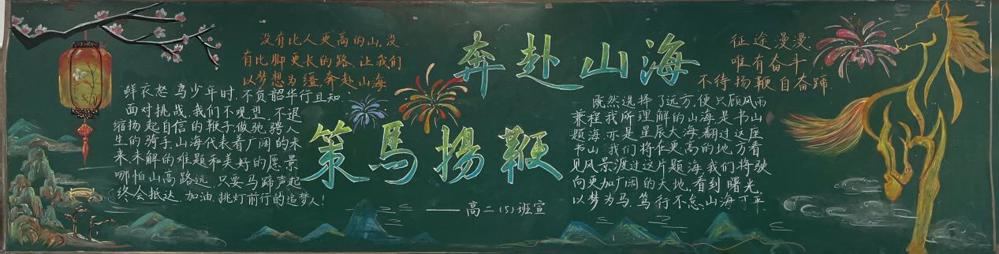 没有比人更高的山,没
有比脚更长的路,让我们
以梦想为缰,奔赴山海
鲜衣怒马少年时,不负韶华行且知、
面对挑战,我们不观望、不退
缩扬起自信的鞭子,做驰骋人
生的骑手,山海代表着广阔的未
来、未解的难题和美好的愿景
哪怕山高路远,只要马蹄声起
终会抵达 加油,挑灯前行的追梦人!
奔赴山海
策馬揚鞭
——高二(5)班宣
征途漫漫,
唯有奋斗
不待扬鞭自奋蹄
既然选择了远方,便只顾风雨
兼程我所理解的山海是书山
题海,亦是星辰大海翻过这座
书山,我们将在更高的地方看
见风景渡过这片题海,我们将驶
向更加广阔的大地,看到曙光
以梦为马,笃行不怠,山海可平